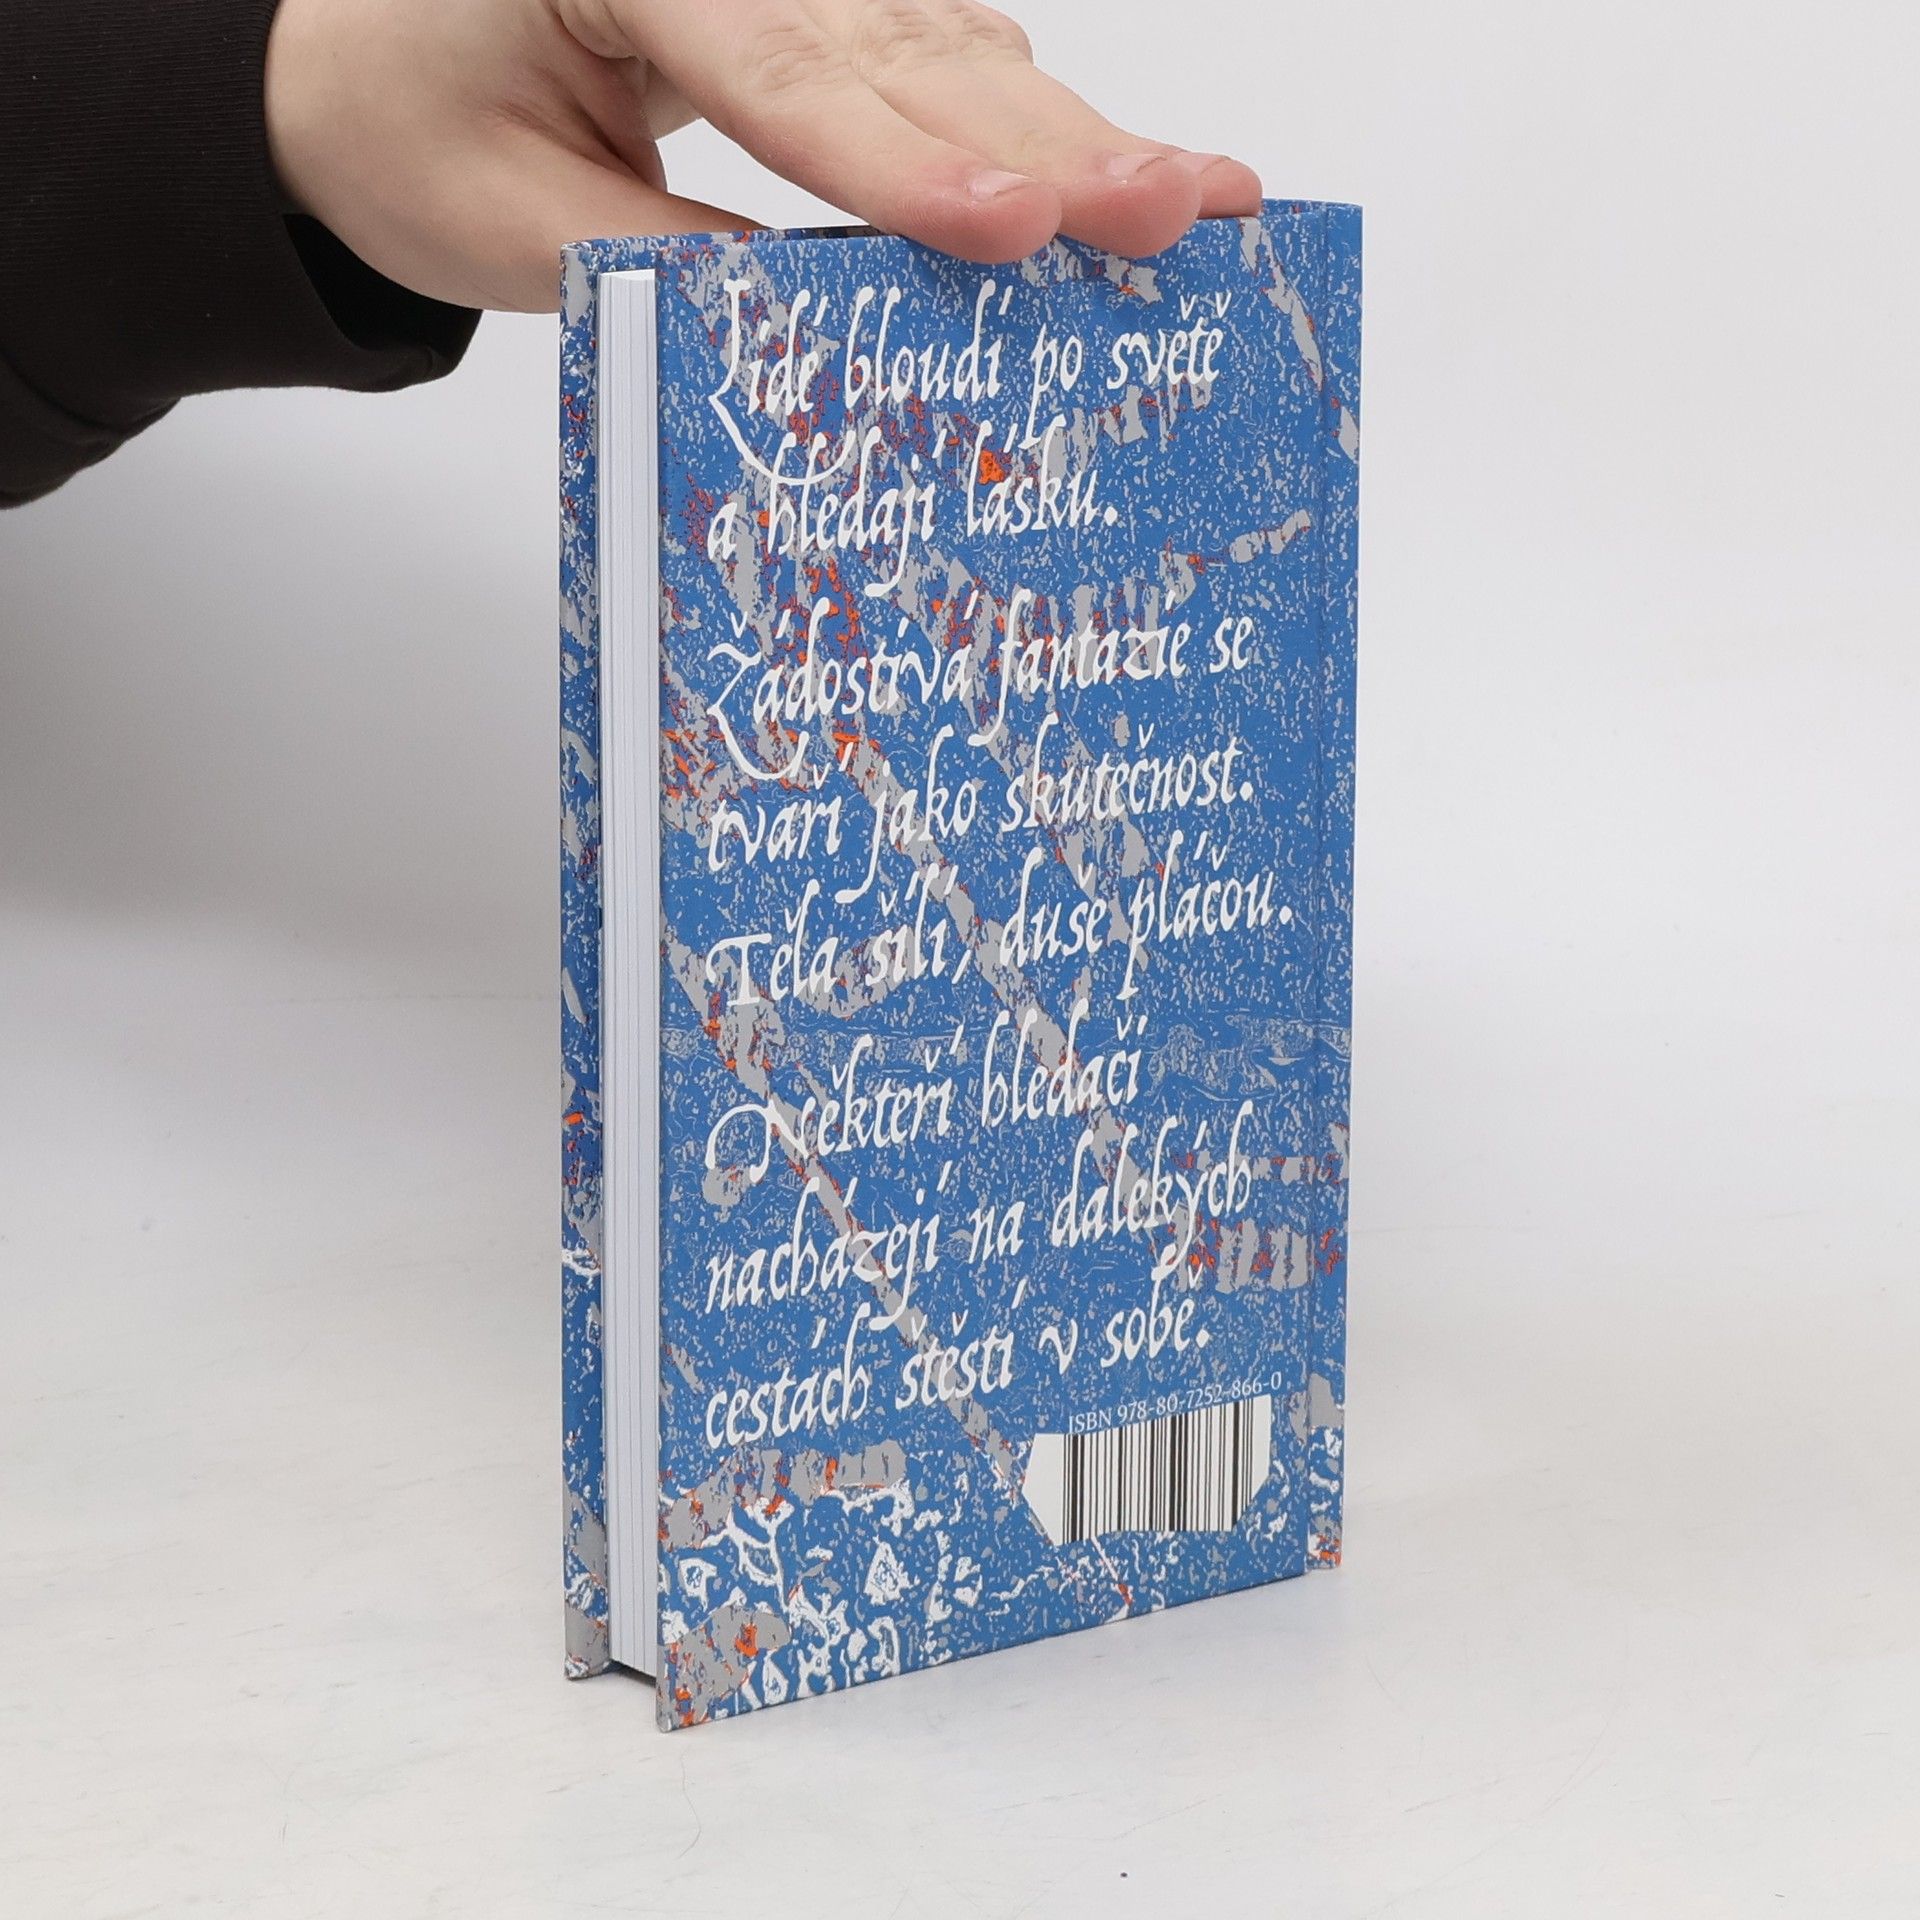 Lidé bloudí po světě
a hledají lásku.
Žádostivá fantazie se
tváří jako skutečnost.
Těla šílí, duše pláčou.
Někteří hledači
nacházejí na dalekých
cestách štěstí v sobě.
ISBN 978-80-7252-866-0